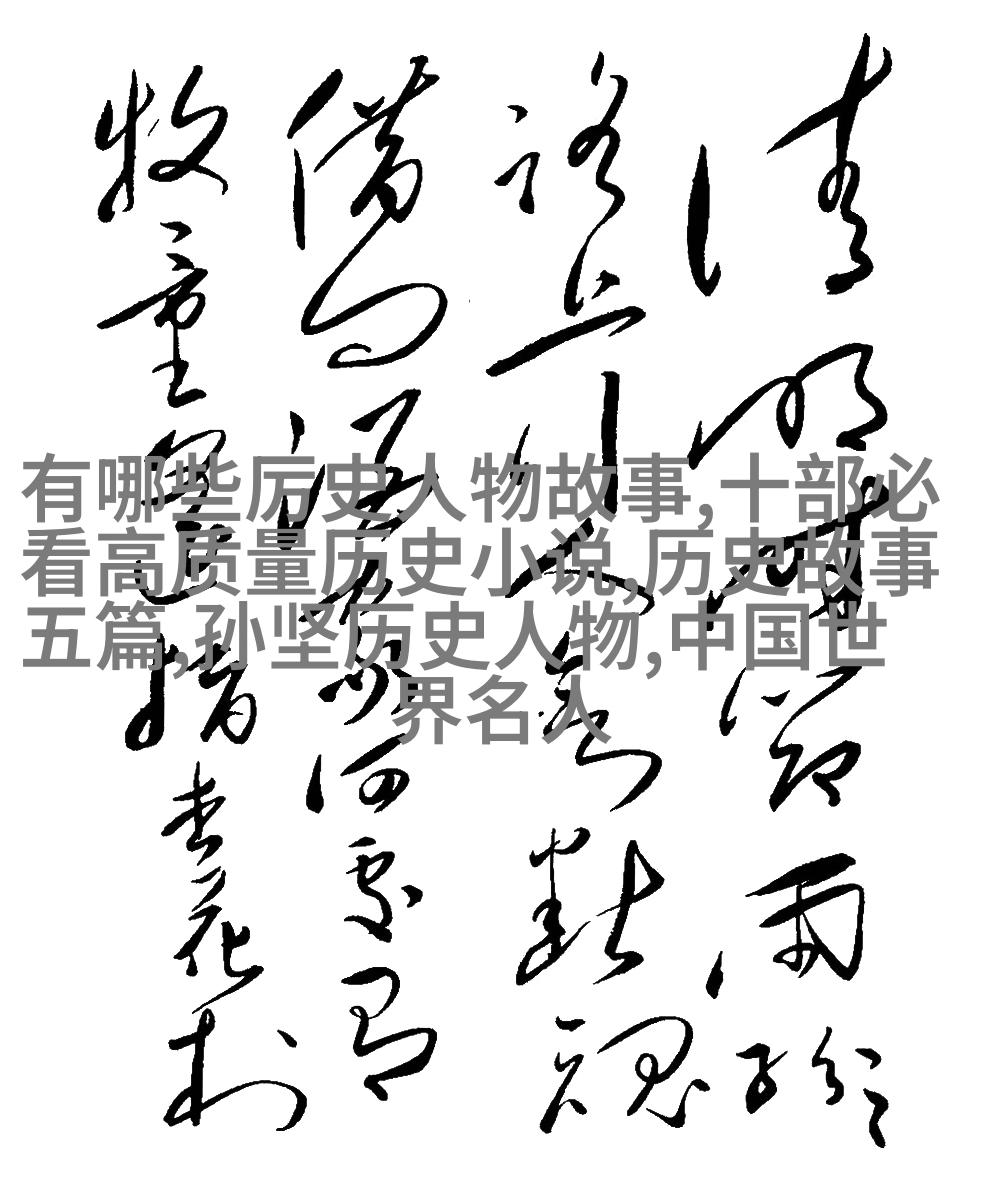 清明時節雨紛紛
路上行人欲断魂
借问酒家何處有
牧童遥指杏花村
有哪些厉史人物故事,十部必
看高质量历史小说,历史故事
五篇,孙坚历史人物,中国世
界名人